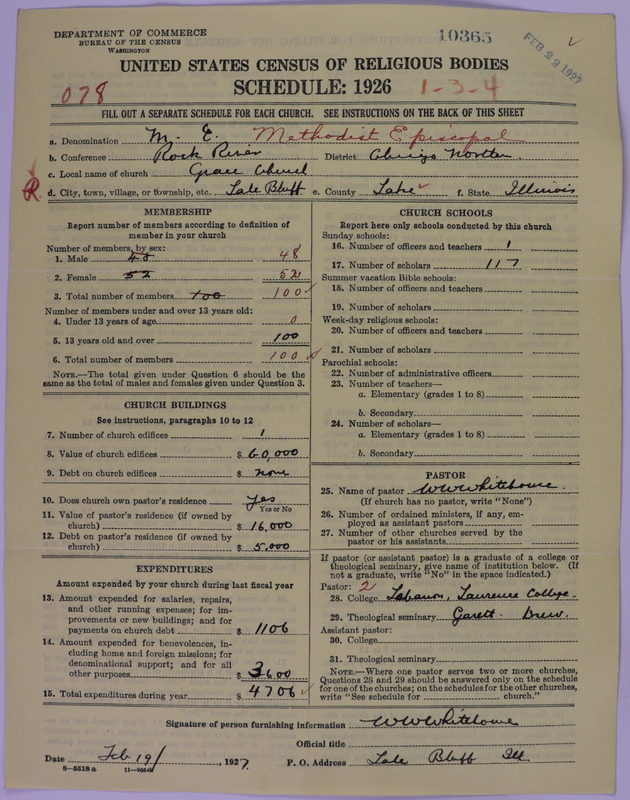 DEPARTMENT OF COMMERCE
BUREAU OF THE CENSUS
WASHINGTON
10365
FEB 23 1927
UNITED STATES CENSUS OF RELIGIOUS BODIES
SCHEDULE: 1926
078
1-3-4
FILL OUT A SEPARATE SCHEDULE FOR EACH CHURCH. SEE INSTRUCTIONS ON THE BACK OF THIS SHEET
a. Denomination M. E. Methodist Episcopal
b. Conference Rock River District Chicago Northern
c. Local name of church Grace Church
d. City, town, village, or township, etc. Lake Bluff e. County Lake f. State Illinois
MEMBERSHIP
Report number of members according to definition of
member in your church
Number of members, by sex:
1. Male 48 48
2. Female 52 52
3. Total number of members 100 100
Number of members under and over 13 years old:
4. Under 13 years of age 0
5. 13 years old and over 100
6. Total number of members 100
NOTE.—The total given under Question 6 should be the
same as the total of males and females given under Question 3.
CHURCH BUILDINGS
See instructions, paragraphs 10 to 12
7. Number of church edifices 1
8. Value of church edifices $ 60,000
9. Debt on church edifices $ none
10. Does church own pastor's residence yes
Yes or No
11. Value of pastor's residence (if owned by
church) $ 16,000
12. Debt on pastor's residence (if owned by
church) $ 5,000
EXPENDITURES
Amount expended by your church during last fiscal year
13. Amount expended for salaries, repairs,
and other running expenses; for im-
provements or new buildings; and for
payments on church debt $ 1106
14. Amount expended for benevolences, in-
cluding home and foreign missions; for
denominational support; and for all
other purposes $ 3600
15. Total expenditures during year $ 4706
CHURCH SCHOOLS
Report here only schools conducted by this church
Sunday schools:
16. Number of officers and teachers 1
17. Number of scholars 117
Summer vacation Bible schools:
18. Number of officers and teachers
19. Number of scholars
Week-day religious schools:
20. Number of officers and teachers
21. Number of scholars
Parochial schools:
22. Number of administrative officers
23. Number of teachers—
a. Elementary (grades 1 to 8)
b. Secondary
24. Number of scholars—
a. Elementary (grades 1 to 8)
b. Secondary
PASTOR
25. Name of pastor WW Whitehouse
(If church has no pastor, write "None")
26. Number of ordained ministers, if any, em-
ployed as assistant pastors
27. Number of other churches served by the
pastor or his assistants
If pastor (or assistant pastor) is a graduate of a college or
theological seminary, give name of institution below. (If
not a graduate, write "No" in the space indicated.)
Pastor: 2
28. College Lebanon, Laurence College
29. Theological seminary Garett. Drew.
Assistant pastor:
30. College
31. Theological seminary
NOTE.—Where one pastor serves two or more churches,
Questions 28 and 29 should be answered only on the schedule
for one of the churches; on the schedules for the other churches,
write "See schedule for church."
Signature of person furnishing information WW Whitehouse
Official title
Date Feb 19/, 1927. P. O. Address Lake Bluff Ill
8—5518 a